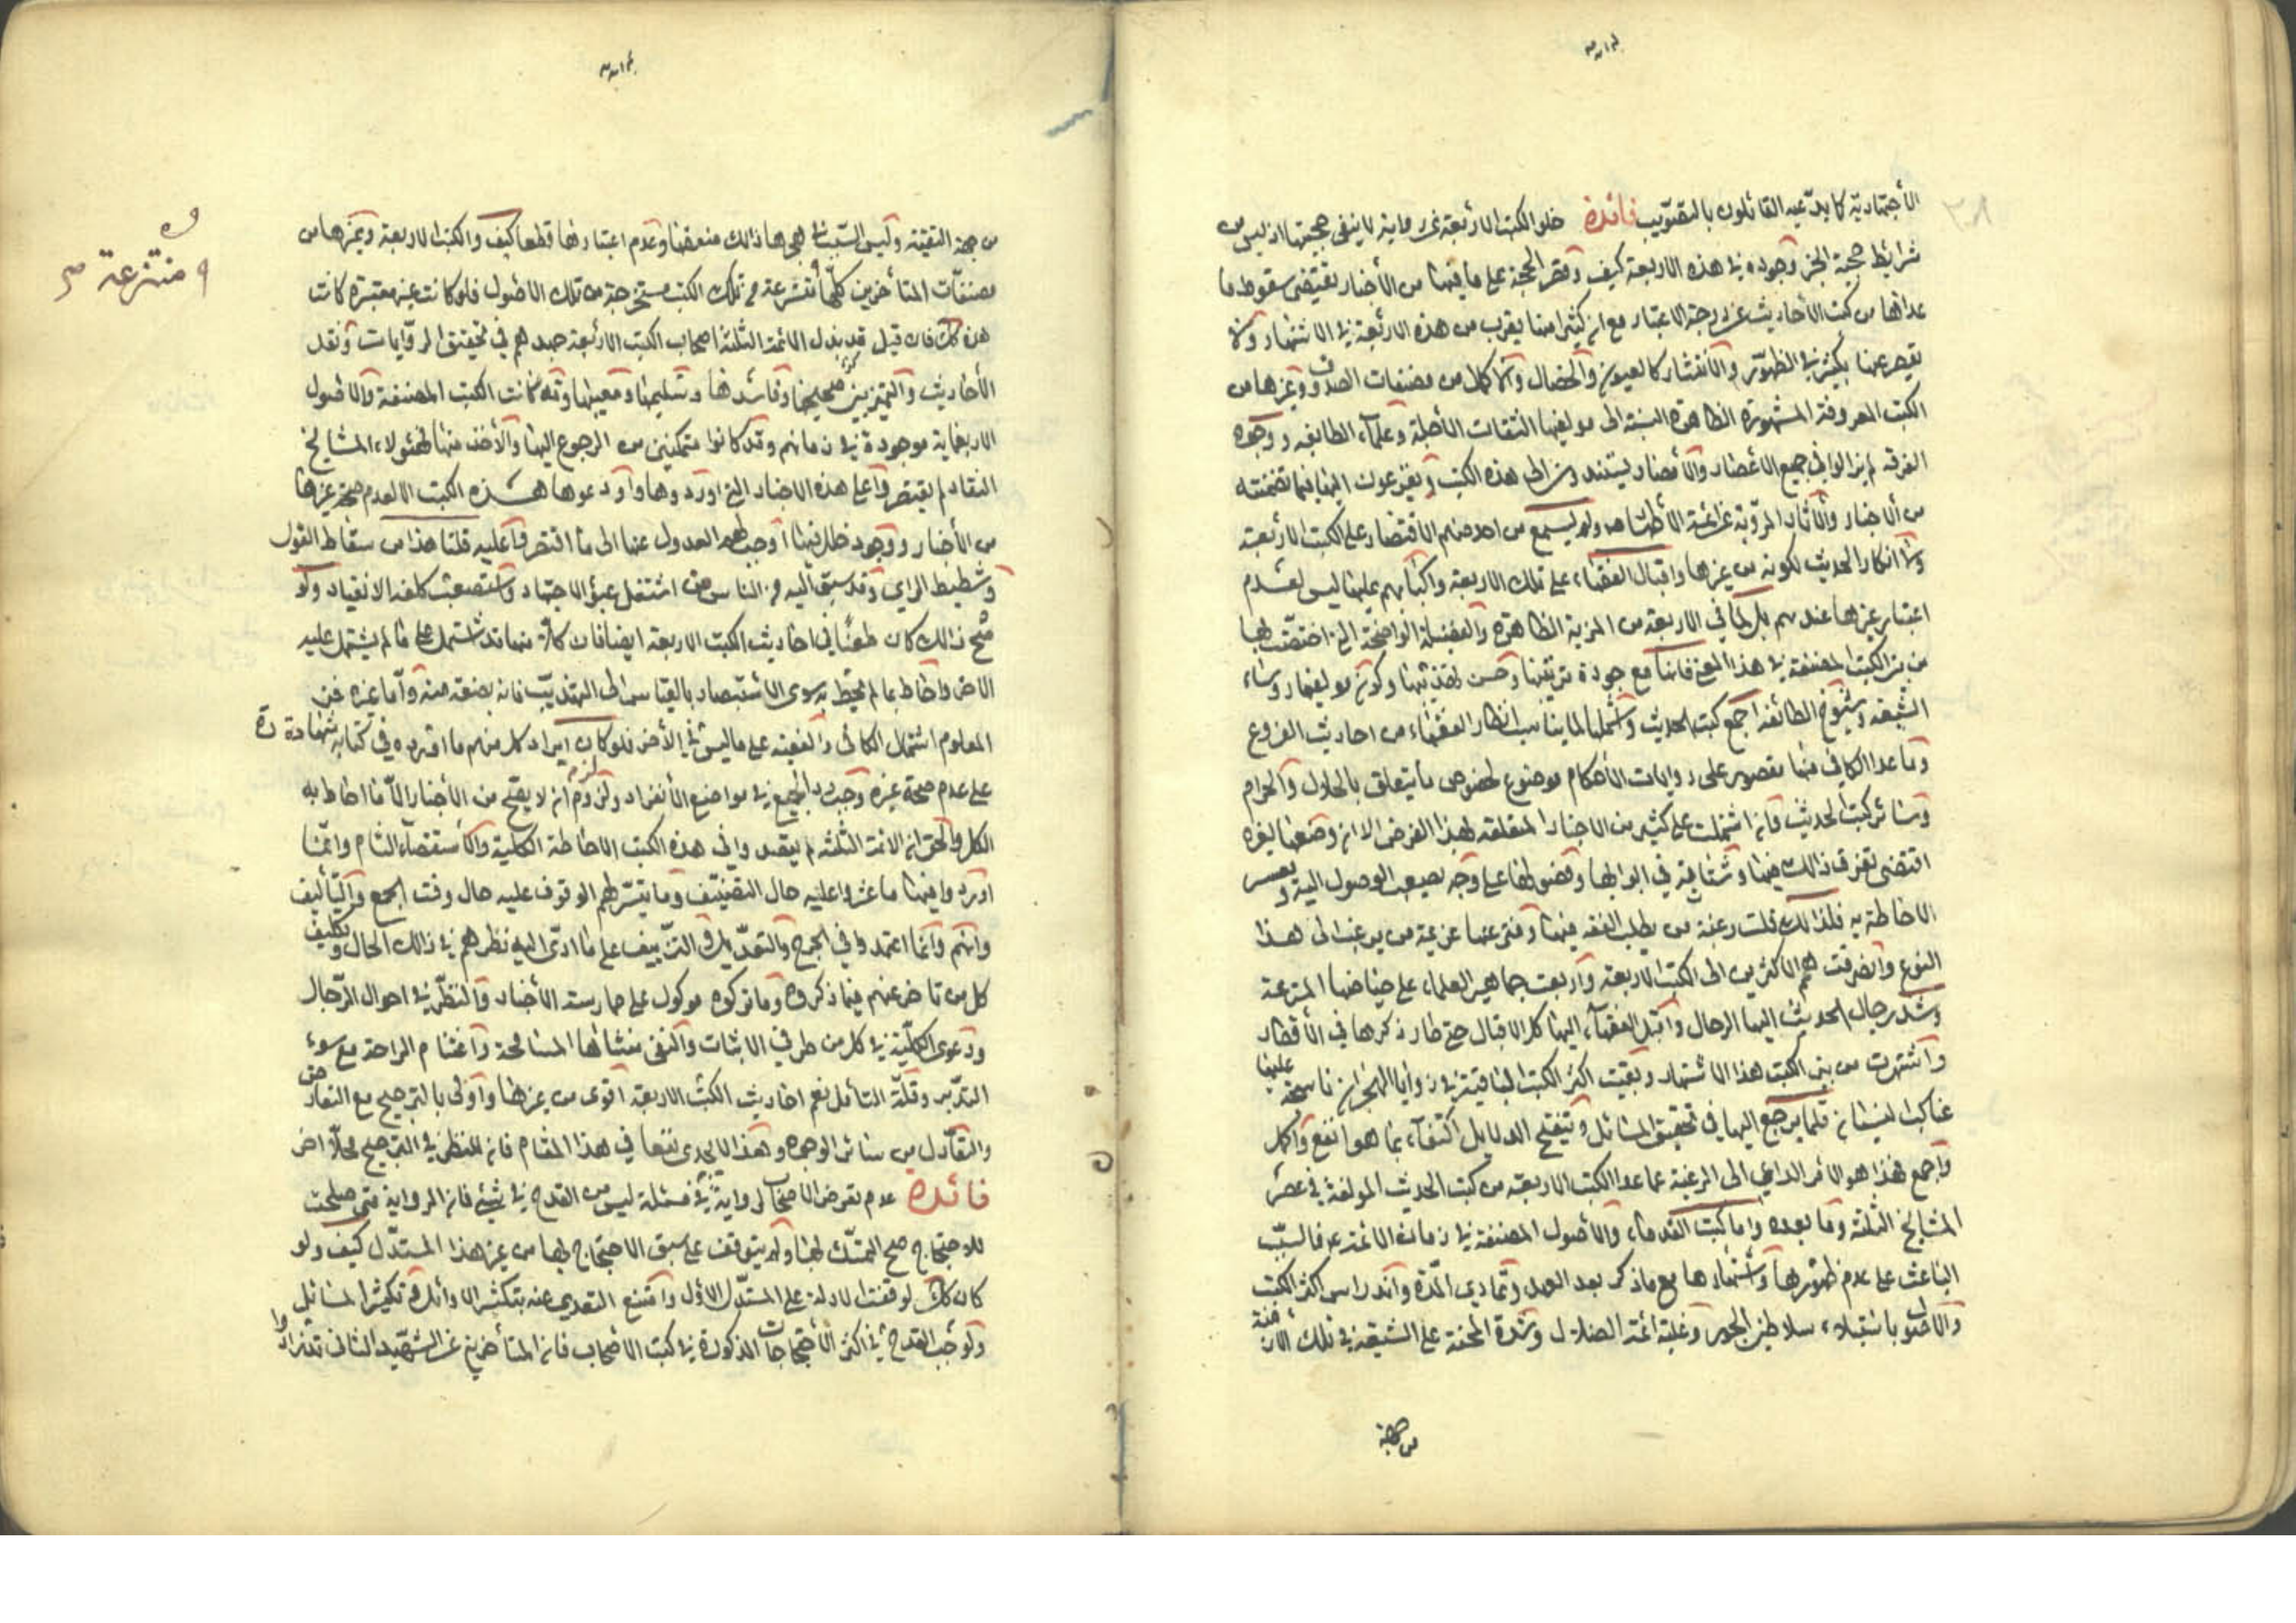 الأجتهادية كا يدّعيه القائلون بالتصويب فائدة خلو الكتب الأربعة عن رواية لا ينفي حجيتها اذ ليس من
شرائط حجية الخبر وجوده في هذه الاربعة كيف وقصر الحجة على ما فيها من الأخبار يقتضي سقوط ما
عداها من كتب الأحاديث عن درجة الاعتبار مع ان كثيرا منها يقرب من هذه الاربعة في الاشتهار ولا
يقصر عنها بكثير في الظهور والأنتشار كالعيون والخصال والاكمال من مصنفات الصدوق وغيرها من
الكتب المعروفة المشهورة الظاهرة النسبة الى مولفيها الثقات الأجلة وعلماء الطايفه ووجوه
الفرقه لم يزالوا في جميع الاعصار والأمصار يستندون الى هذه الكتب ويفزعون اليها فيما تضمنته
من الأخبار والأثار المروية عن الأئمة الأطهار ولم يسمع من احد منهم الاقتصار على الكتب الأربعة
ولا انكار الحديث لكونه من غيرها واقبال الفقهاء على تلك الاربعة واكبابهم عليها ليس لعدم
اعتبار غيرها عندهم بل لما في الاربعة من المزية الظاهرة والفضيلة الواضحة التي اختصّت بها
من بين الكتب المصنفة في هذا المعنى فانها مع جودة ترتيبها وحسن تهذيبها وكون مولفيها رؤساء
الشيعه وشيوخ الطائفه اجمع كتب الحديث واشملها لما يناسب انظار الفقهاء من احاديث الفروع
وما عدا الكافي منها مقصور على روايات الأحكام موضوع لخصوص ما يتعلق بالحلال والحرام
وسائر كتب الحديث فانه اشتملت على كثير من الاخبار المتعلقه بهذا الغرض الا ان وضعها لغيره
اقتضى تفرق ذالك فيها وشتاته في ابوابها وفصولها على وجه يصعب الوصول اليه ويعسر
الاحاطة به فلذالك قلت رغبة من يطلب الفقه فيها وفتر عنها عزيمة من يرغب الى هذا
النوع وانصرفت همم الاكثرين الى الكتب الاربعه واربعت جماهير العلماء على حياضها المترعة
وشد رجال الحديث اليها الرحال واقبل الفقهاء اليها كل الاقبال حتى طار ذكرها في الأقطار
واشتهرت من بين الكتب هذا الاشتهار وبقيت اكثر الكتب الباقية في زوايا الهجران ناسجة عليها
عناكب النسيان قلما يرجع اليها في تحقيق المسائل وتنقيح الدلايل اكتفاء بما هو انفع واكمل
واجمع فهذا هو الأمر الداعي الى الرغبة عما عدا الكتب الاربعه من كتب الحديث المولفة في عصر
المشايخ الثلثة وما بعده واما كتب القدماء والأصول المصنفة في زمان الائمة ع فالسبّب
الباعث على عدم ظهورها واشتهارها مع ما ذكر بعد العهد وتمادي المدّة واندراس اكثر الكتب
والاصول باستيلاء سلاطين الجور وغلبة ائمة الضلال وشدة المحنة على الشيعة في تلك الأزمنة
من جهة
من جهة التقيّة وليس السّبب في هجرها ذالك ضعفها وعدم اعتبارها قطعا كيف والكتب الاربعة وغيرها من
مصنفّات المتأخرين كلّها من تلك الكتب مستخرجة من تلك الاصول فلو كانت غير معتبرة كانت
هذه كك فان قيل قد بذل الائمة الثلثة اصحاب الكتب الأربعة جهدهم في تحقيق الروايات ونقد
الأحاديث والتميز بين صحيحها وفاسدها وسليمها ومعيبها وقد كانت الكتب المصنفة والاصول
الاربعمايه موجودة في زمانهم وقد كانوا متمكنين من الرجوع اليها والأخذ منها فهؤلاء المشايخ
النقاد لم يقتصروا على هذه الاخبار التي اوردوها واودعوها هذه الكتب الا لعدم صحة غيرها
من الأخبار ووجود خلل فيها اوجب لهم العدول عنها الى ما اقتصروا عليه قلنا هذا من سقاط القول
وشطيط الراي وقد سبق اليه من الناس من اشتغل عبؤ الاجتهاد واستصعب كلفه الانقياد ولو
صح ذالك كان طعنًا في احاديث الكتب الاربعه ايضا فان كلا منها قد اشتمل على ما لم يشتمل عليه
الاخر واحاط بما لم يحط به سوى الأستبصار بالقياس الى التهذيب فانه بضعة منه وأما غيره فمن
المعلوم اشتمال الكافي والفقيه على ما ليس في الأخر فلو كان ايراد كل منهم ما افرده في كتابه شهادة
على عدم صحة غيره وجب رد الجميع في مواضع الأنفراد ولزوم ان لا يصّح من الأخبار الّا ما احاط به
الكل والحق ان الائمة الثلثه لم يقصدوا في هذه الكتب الاحاطة الكلية والأستقصاء التام وانما
اوردوا فيها ما عثروا عليه حال التصنيف وما يتيسّر لهم الوقوف عليه حال وقت الجمع والتأليف
وانهم وانما اعتمدوا في الجرح والتعديل والتزييف على ما ادى اليه نظرهم في ذالك الحال وتكليف
كل من تاخر عنهم فيما ذكروه وما تركوه موكول على ممارسته الأخبار والنظر في احوال الرّجال
ودعوى الكليّة في كل من طرفي الاثبات والنفى منشائها المسامحة واغتنام الراحة مع سوء
التدّبر وقلّة التامل نعم احاديث الكتب الاربعة اقوى من غيرها واولى بالترجيح مع التعارض
والتعادل من سائر الوجوه وهذا لا يجدي نفعا في هذا المقام فان للنظر في الترجيح محلّا اخر
فائدة عدم تعرض الاصحاب لرواية في مسئلة ليس من القدح في شيئ فان الرواية متى صلحت
للاحتجاج صح التمسّك بها ولم يتوقف على سبق الاحتجاج بها من غير هذا المستدّل كيف ولو
كان كك لوقفت الادلة على المستدّل الأول وامتنع التعدي عنه بتكثير الدلائل وتكثير المسائل
ولوجب القدح في اكثر الأحتجاجات المذكورة في كتب الاصحاب فان المتأخرين عن الشهيد الثاني
منتزعة